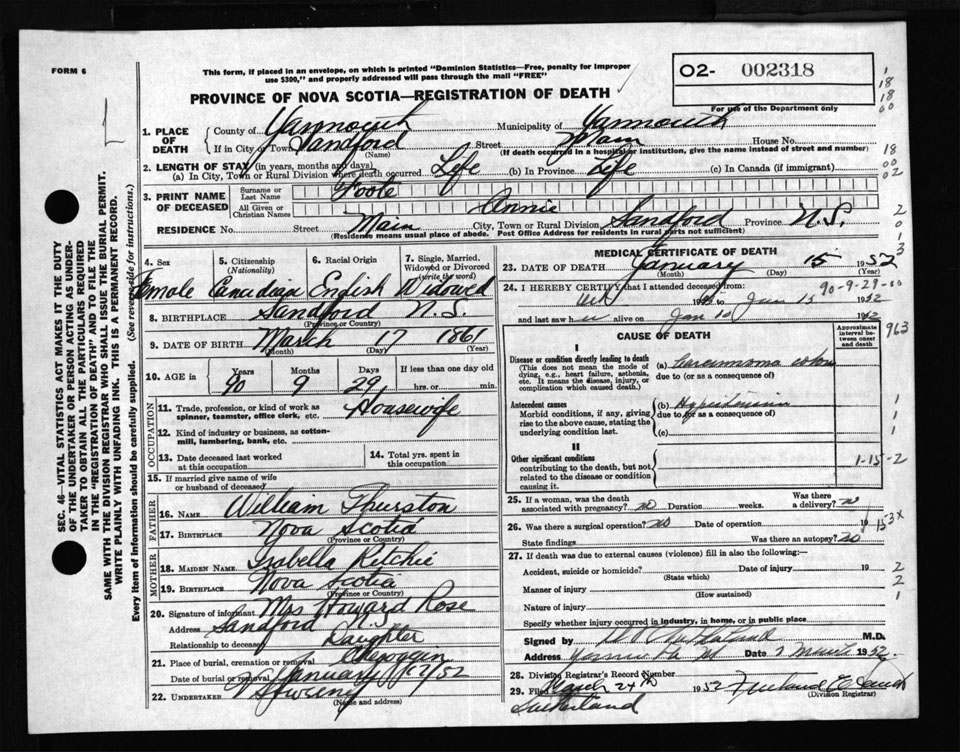 FORM 6
This form, if placed in an envelope, on which is printed "Dominion Statistics—Free, penalty for improper
use $300," and properly addressed will pass through the mail "FREE"
O2- 002318
For use of the Department only
PROVINCE OF NOVA SCOTIA—REGISTRATION OF DEATH
1. PLACE OF DEATH { County of Yarmouth Municipality of Yarmouth
If in City or Town Sandford (Name) Street Main House No.
(If death occurred in a hospital or institution, give the name instead of street and number)
2. LENGTH OF STAY (in years, months and days)
(a) In City, Town or Rural Division where death occurred Life (b) In Province Life (c) In Canada (if immigrant)
3. PRINT NAME OF DECEASED { Surname or Last Name Poole
All Given or Christian Names Annie
RESIDENCE No. Street Main City, Town or Rural Division Sandford Province N.S.
(Residence means usual place of abode. Post Office Address for residents in rural parts not sufficient)
4. Sex 5. Citizenship (Nationality) 6. Racial Origin 7. Single, Married, Widowed or Divorced (write the word)
Female Canadian English Widowed
8. BIRTHPLACE Sandford N.S.
(Province or Country)
9. DATE OF BIRTH March 17 1861
(Month) (Day) (Year)
10. AGE in Years Months Days If less than one day old
90 9 29 hrs. or min.
OCCUPATION
11. Trade, profession, or kind of work as spinner, teamster, office clerk, etc. Housewife
12. Kind of industry or business, as cotton-mill, lumbering, bank, etc.
13. Date deceased last worked at this occupation
14. Total yrs. spent in this occupation
15. If married give name of wife or husband of deceased
FATHER
16. NAME William Thurston
17. BIRTHPLACE Nova Scotia
(Province or Country)
MOTHER
18. MAIDEN NAME Isabella Ritchie
19. BIRTHPLACE Nova Scotia
(Province or Country)
20. Signature of informant Mrs Howard Rose
Address Sandford N.S.
Relationship to deceased Daughter
21. Place of burial, cremation or removal Chegoggin
Date of burial or removal January 17/52
22. UNDERTAKER V Sweeny
(Name and address)
MEDICAL CERTIFICATE OF DEATH
23. DATE OF DEATH January 15 1952
(Month) (Day) (Year)
24. I HEREBY CERTIFY that I attended deceased from
to Jan 15 1952
90-9-29-00
and last saw h alive on Jan 10 1952
CAUSE OF DEATH
Approximate interval between onset and death
963
I
Disease or condition directly leading to death
(This does not mean the mode of dying, e.g., heart failure, asthenia, etc. It means the disease, injury, or complication which caused death.)
(a) Carcinoma colon
due to (or as a consequence of)
Antecedent causes
Morbid conditions, if any, giving rise to the above cause, stating the underlying condition last.
(b)
due to (or as a consequence of)
(c)
II
Other significant conditions
contributing to the death, but not related to the disease or condition causing it.
1-15-2
25. If a woman, was the death associated with pregnancy? no Duration weeks. Was there a delivery? no
26. Was there a surgical operation? no Date of operation 19
153x
State findings Was there an autopsy? no
27. If death was due to external causes (violence) fill in also the following:—
Accident, suicide or homicide? Date of injury 19
(State which)
Manner of injury
(How sustained)
Nature of injury
Specify whether injury occurred in industry, in home, or in public place
Signed by M.D.
Address Date March 1952.
28. Division Registrar's Record Number
29. Filed March 24th 1952
(Division Registrar)
Sutherland
SEC. 46—VITAL STATISTICS ACT MAKES IT THE DUTY
OF THE UNDERTAKER OR PERSON ACTING AS UNDER-
TAKER TO OBTAIN ALL THE PARTICULARS REQUIRED
IN THE "REGISTRATION OF DEATH" AND TO FILE THE
SAME WITH THE DIVISION REGISTRAR WHO SHALL ISSUE THE BURIAL PERMIT.
WRITE PLAINLY WITH UNFADING INK. THIS IS A PERMANENT RECORD.
Every item of information should be carefully supplied. (See reverse side for instructions.)